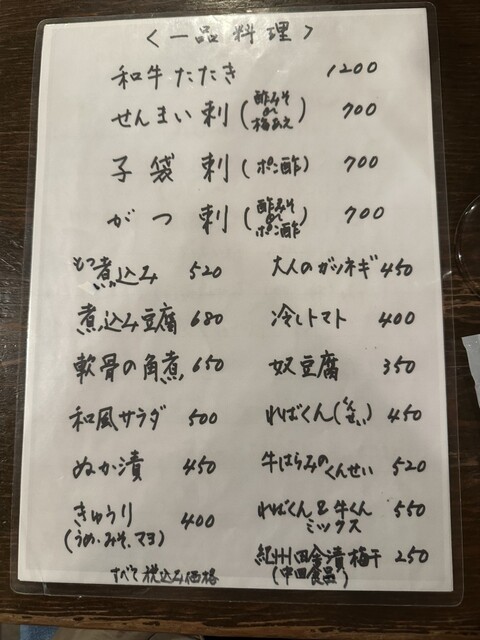 〈一品料理〉
和牛たたき 1200
せんまい刺(酢みそ or 梅あえ) 700
子袋刺(ポン酢) 700
がつ刺(酢みそ or ポン酢) 700
もつ煮込み 520
煮込み豆腐 680
軟骨の角煮 650
和風サラダ 500
ぬか漬 450
きゅうり 400
(うめ・みそ、マヨ)
すべて税込み価格
大人のガツネギ 450
冷しトマト 400
奴豆腐 350
ればくん(くんせい) 450
牛はらみのくんせい 520
ればくん&牛くん
ミックス 550
紀州田舎漬梅干 250
(中田食品)